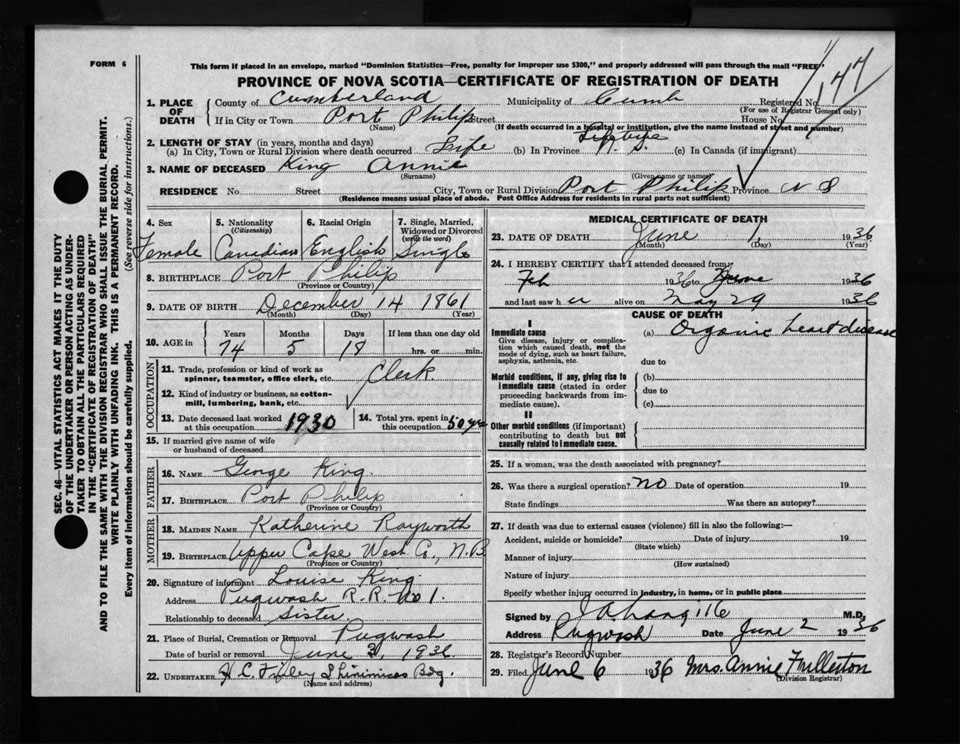 FORM 6
This form if placed in an envelope, marked "Dominion Statistics—Free, penalty for improper use $300," and properly addressed will pass through the mail "FREE"
PROVINCE OF NOVA SCOTIA—CERTIFICATE OF REGISTRATION OF DEATH
147
1. PLACE OF DEATH
County of Cumberland Municipality of Cumb Registered No.
(For use of Registrar General only)
If in City or Town Port Philip Street House No.
(Name) (If death occurred in a hospital or institution, give the name instead of street and number)
2. LENGTH OF STAY (in years, months and days)
(a) In City, Town or Rural Division where death occurred Life (b) In Province (c) In Canada (if immigrant)
3. NAME OF DECEASED King Annie
(Surname) (Given name or names)
RESIDENCE No. Street City, Town or Rural Division Port Philip Province N S
(Residence means usual place of abode. Post Office Address for residents in rural parts not sufficient)
SEC. 46—VITAL STATISTICS ACT MAKES IT THE DUTY
OF THE UNDERTAKER OR PERSON ACTING AS UNDER-
TAKER TO OBTAIN ALL THE PARTICULARS REQUIRED
IN THE "CERTIFICATE OF REGISTRATION OF DEATH"
AND TO FILE THE SAME WITH THE DIVISION REGISTRAR WHO SHALL ISSUE THE BURIAL PERMIT.
WRITE PLAINLY WITH UNFADING INK. THIS IS A PERMANENT RECORD.
Every item of information should be carefully supplied. (See reverse side for instructions.)
4. Sex
Female
5. Nationality
(Citizenship)
Canadian
6. Racial Origin
English
7. Single, Married, Widowed or Divorced
(write the word)
Single
8. BIRTHPLACE Port Philip
(Province or Country)
9. DATE OF BIRTH December 14 1861
(Month) (Day) (Year)
10. AGE in
Years Months Days If less than one day old
74 5 18 hrs. or min.
OCCUPATION
11. Trade, profession or kind of work as
spinner, teamster, office clerk, etc. Clerk
12. Kind of industry or business, as cotton-
mill, lumbering, bank, etc.
13. Date deceased last worked
at this occupation 1930
14. Total yrs. spent in
this occupation 50 yrs
15. If married give name of wife
or husband of deceased
FATHER
16. NAME George King
17. BIRTHPLACE Port Philip
(Province or Country)
MOTHER
18. MAIDEN NAME Katherine Rayworth
19. BIRTHPLACE Upper Cape West. Co., N.B
(Province or Country)
20. Signature of informant Louise King
Address Pugwash R.R. No 1.
Relationship to deceased Sister
21. Place of Burial, Cremation or Removal Pugwash
Date of burial or removal June 3, 1936
22. UNDERTAKER
(Name and address)
MEDICAL CERTIFICATE OF DEATH
23. DATE OF DEATH June 1, 1936
(Month) (Day) (Year)
24. I HEREBY CERTIFY that I attended deceased from
Feb 1936 to June 1936
and last saw her alive on May 29 1936
CAUSE OF DEATH
I
Immediate cause
Give disease, injury or complica-
tion which caused death, not the
mode of dying, such as heart failure,
asphyxia, asthenia, etc.
(a) Organic heart disease
due to
Morbid conditions, if any, giving rise to
immediate cause (stated in order
proceeding backwards from im-
mediate cause).
(b)
due to
(c)
II
Other morbid conditions (if important)
contributing to death but not
causally related to immediate cause.
25. If a woman, was the death associated with pregnancy?
26. Was there a surgical operation? No Date of operation 19
State findings Was there an autopsy?
27. If death was due to external causes (violence) fill in also the following:—
Accident, suicide or homicide? Date of injury 19
(State which)
Manner of injury
(How sustained)
Nature of injury
Specify whether injury occurred in industry, in home, or in public place
Signed by M.D.
Address Pugwash Date June 2 1936
28. Registrar's Record Number
29. Filed June 6 1936 Mrs. Annie Fullerton
(Division Registrar)